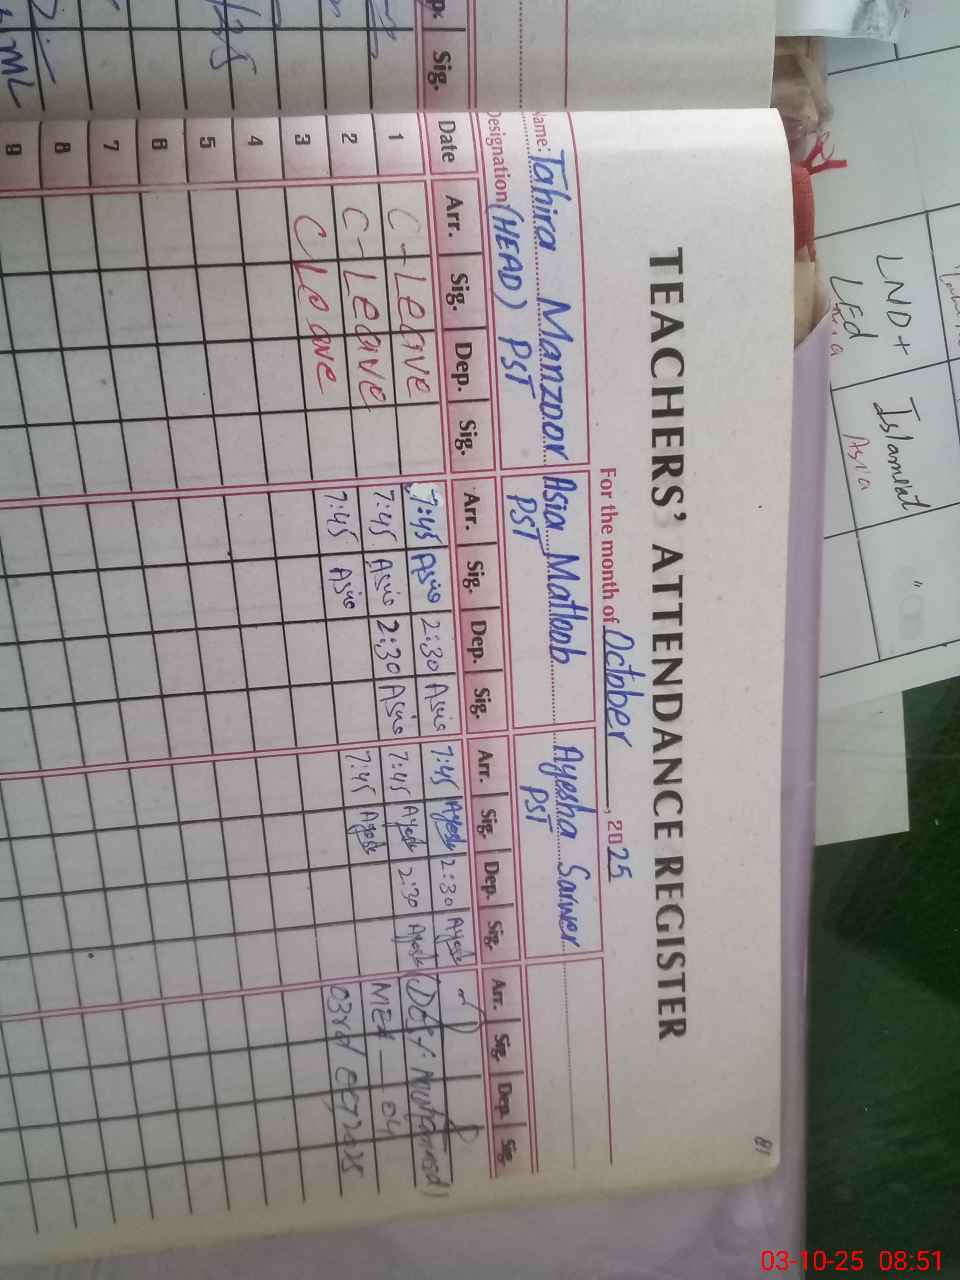 81
TEACHERS' ATTENDANCE REGISTER
For the month of October, 2025
Name: Tahira Manzoor Asia Matloob Ayesha Sarwer
Designation (HEAD) PST PST PST
Date Arr. Sig. Dep. Sig. Arr. Sig. Dep. Sig. Arr. Sig. Dep. Sig. Arr. Sig. Dep. Sig.
1 C-Leave 7:45 Asia 2:30 Asia 7:45 Ayesha 2:30 Ayesha
2 C-Leave 7:45 Asia 2:30 Asia 7:45 Ayesha 2:30 Ayesha
3 C Leave 7:45 Asia 7:45 Ayesha
4
5
6
7
8
9
MEA - 04
03rd OCT 2025
Sig.
LND +
Islamiat
Asia
03-10-25 08:51